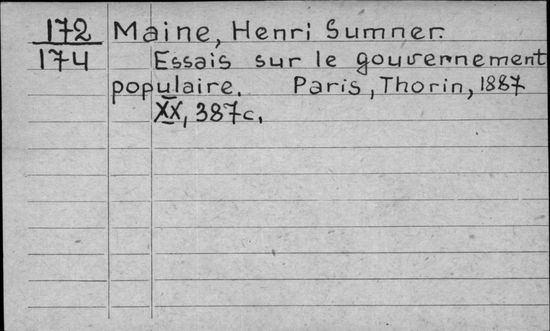 172 Maine, Henri Sumner.
174 Essais sur le gouvernement
populaire. Paris, Thorin, 1887
XX, 387c.